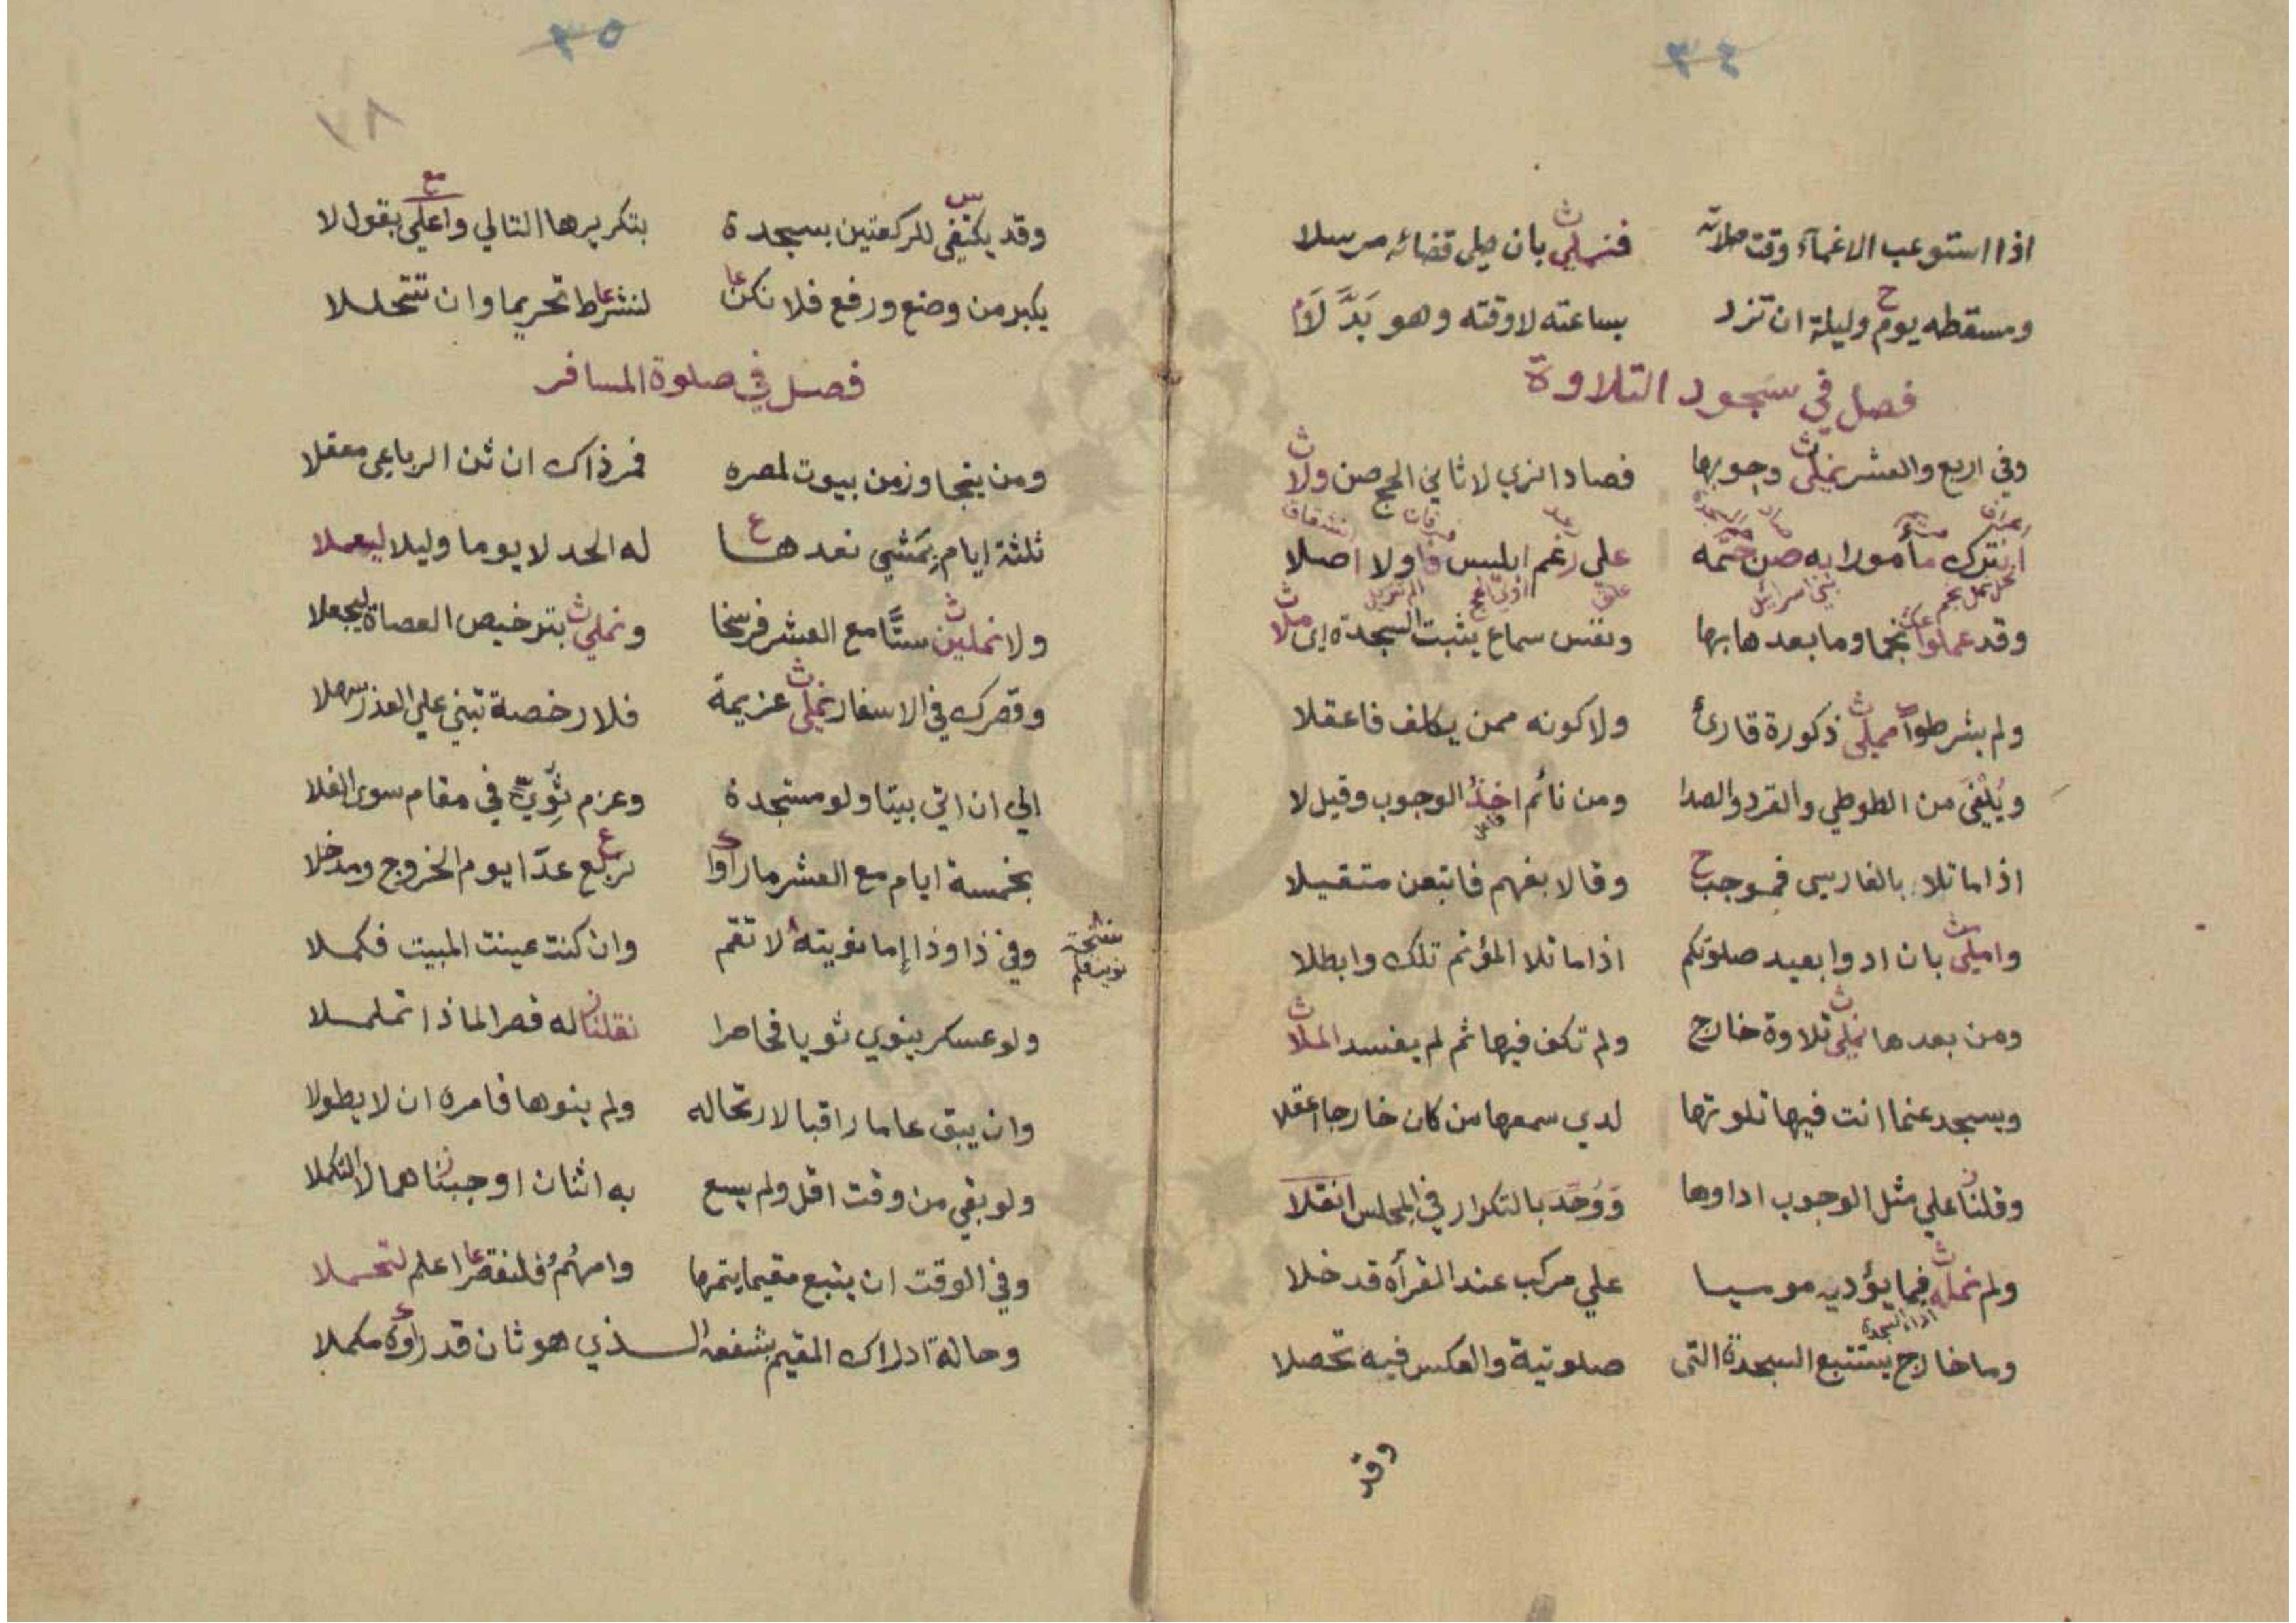 ٣٤
اذا استوعب الاغمآء وقت صلاته فنملي بان يلي قضائه مرسلا
ومسقطه يوم وليلة ان تزد بساعته لا وقته وهو بَدَّلَا
فصل في سجود التلاوة
وفي اربع والعشر نملى وجوبها فصاد الذي لا ثاني الحج صن ولا
اتترك مأمورا به صن على رغم ابليس ولا اصلا
وقد عملوا نجما وما بعدها بها ونفس سماع يثبت السجدة ملا
ولم يشرطوا مملى ذكورة قارئ ولا كونه ممن يكلف فاعقلا
ويُلْغَى من الطوطي والقرد والصدا ومن نائم اخذ الوجوب وقيل لا
اذا ما تلا بالفارسي فموجب وقالا بفهم فاتبعن متقيلا
واملى بان ادوا بعيد صلوتكم اذا ما تلا المؤتم تلك وابطلا
ومن بعدها نملى تلاوة خارج ولم تكف فيها ثم لم يفسد الملا
ويسجد عنما انت فيها تلوتها لدي سمعها من كان خارجا اعقلا
وقلنا علي مثل الوجوب اداوها وَوُحِّدَ بالتكرار في المجلس انقلا
ولم نمله فيما يؤديه موسيا علي مركب عند القرأه قد خلا
اداء السجدة
وما خارج يستتبع السجدة التى صلوتية والعكس فيه تحصلا
وقد
٣٥
٨٧
وقد يكتفي للركعتين بسجدة بتكريرها التالي واعلي بقول لا
يكبر من وضع ورفع فلا نكن لنشرط تحريما وان تتحللا
فصل في صلوة المسافر
ومن يتجاوز من بيوت لمصره فمر ذاك ان ثن الرباعي معقلا
ثلثة ايام بمَشي نعدها له الحد لا يوما وليلا ليعملا
ولا نملين ستًّا مع العشر فرسخا ونملي بترخيص العصاة ليجعلا
وقصرك في الاسفار نملى عزيمة فلا رخصة تبني علي العذر سهلا
الي ان اتي بيتا ولو مستجدة وعزم ثويّ في مقام سوى الفلا
بخمسة ايام مع العشر ما راوا نربع عدّا يوم الخروج ومدخلا
وفي ذا وذا إما نويته لا تقم وان كنت عينت المبيت فكملا
ولو عسكر ينوي ثويا فحاصرا نقلنا له قصرا لماذا تململا
وان يبق عاما راقبا لارتحاله ولم ينوها فامره ان لا يطولا
ولو بقي من وقت اقل ولم يسع به اثنان اوجبناهما لا التكملا
وفي الوقت ان يتبع مقيما يتمها وامهُمُ فلنقصرا علم لتحملا
وحالة ادراك المقيم بشفعه الذي هو ثان قد راوه مكملا